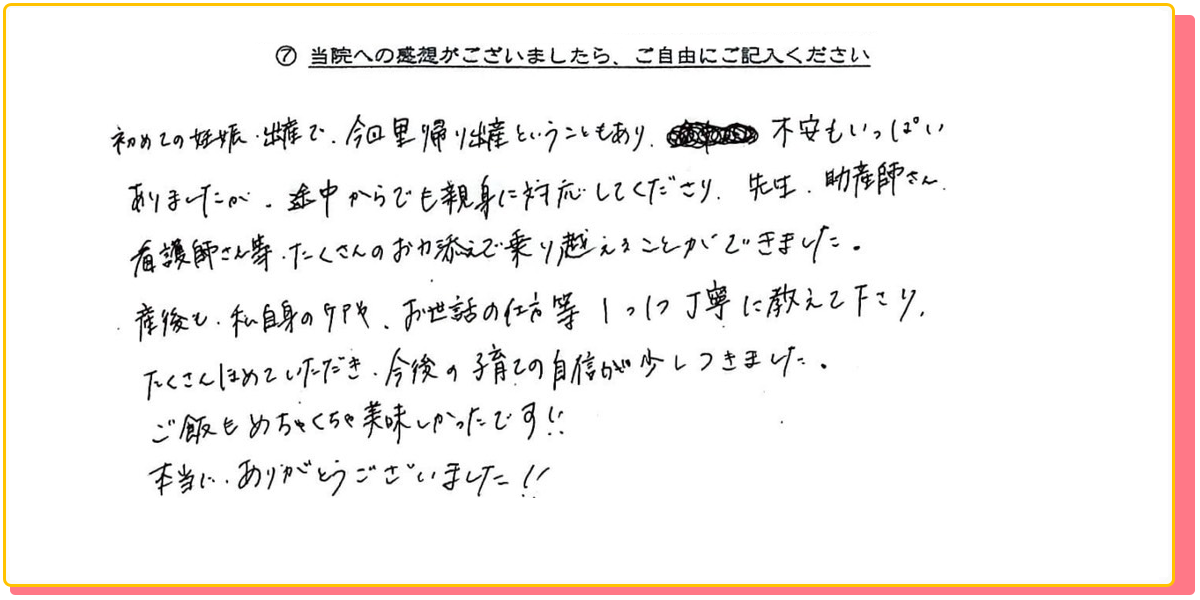 ⑦ 当院への感想がございましたら、ご自由にご記入ください
初めての妊娠・出産で、今回里帰り出産ということもあり、不安もいっぱい
ありましたが、途中からでも親身に対応してくださり、先生、助産師さん、
看護師さん等、たくさんのお力添えで乗り越えることができました。
産後も、私自身のケアや、お世話の仕方等1つ1つ丁寧に教えて下さり、
たくさんほめていただき、今後の子育ての自信が少しつきました。
ご飯もめちゃくちゃ美味しかったです!!
本当に、ありがとうございました!!